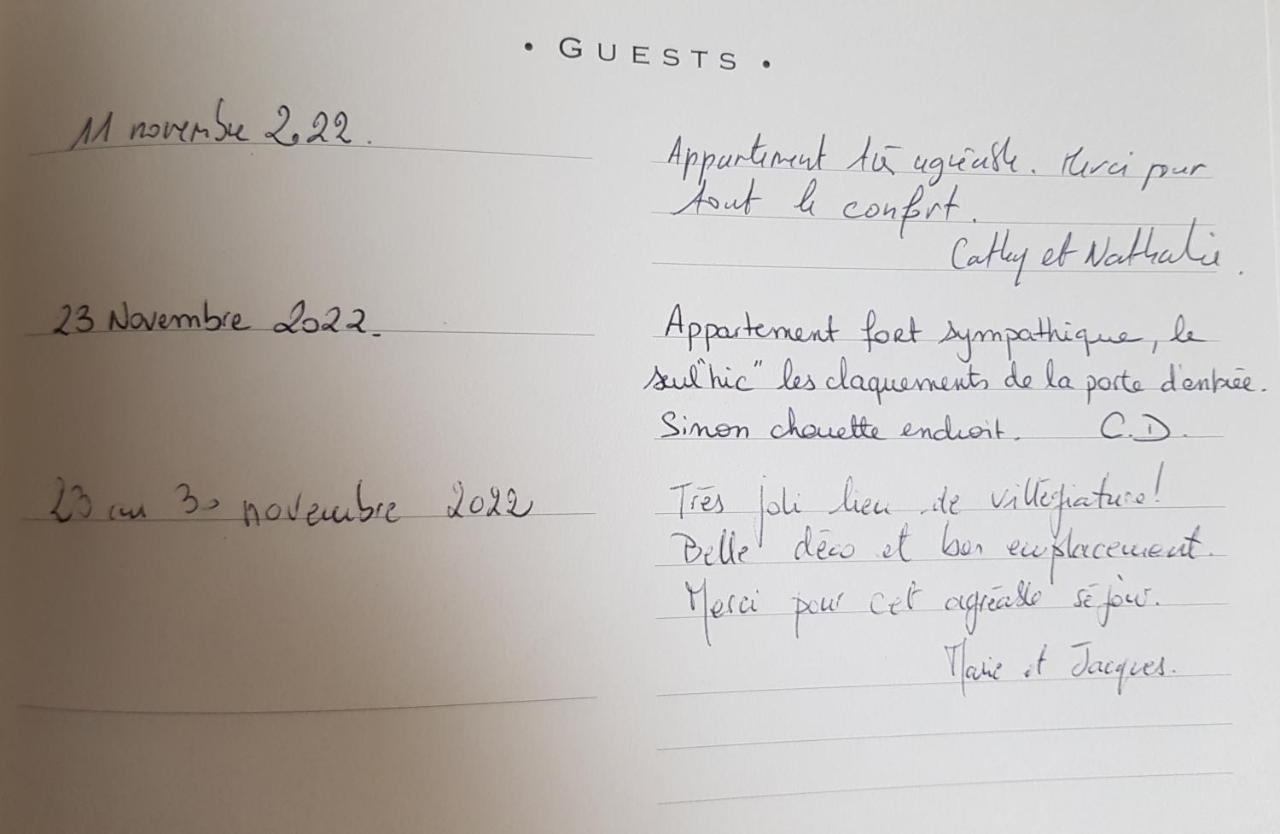 • GUESTS •
11 novembre 2022.
Appartement très agréable. Merci pour
tout le confort.
Cathy et Nathalie.
23 Novembre 2022.
Appartement fort sympathique, le
seul "hic" les claquements de la porte d'entrée.
Sinon chouette endroit. C.D.
23 au 30 novembre 2022
Très joli lieu de villégiature!
Belle déco et bon emplacement.
Merci pour cet agréable séjour.
Marie et Jacques.